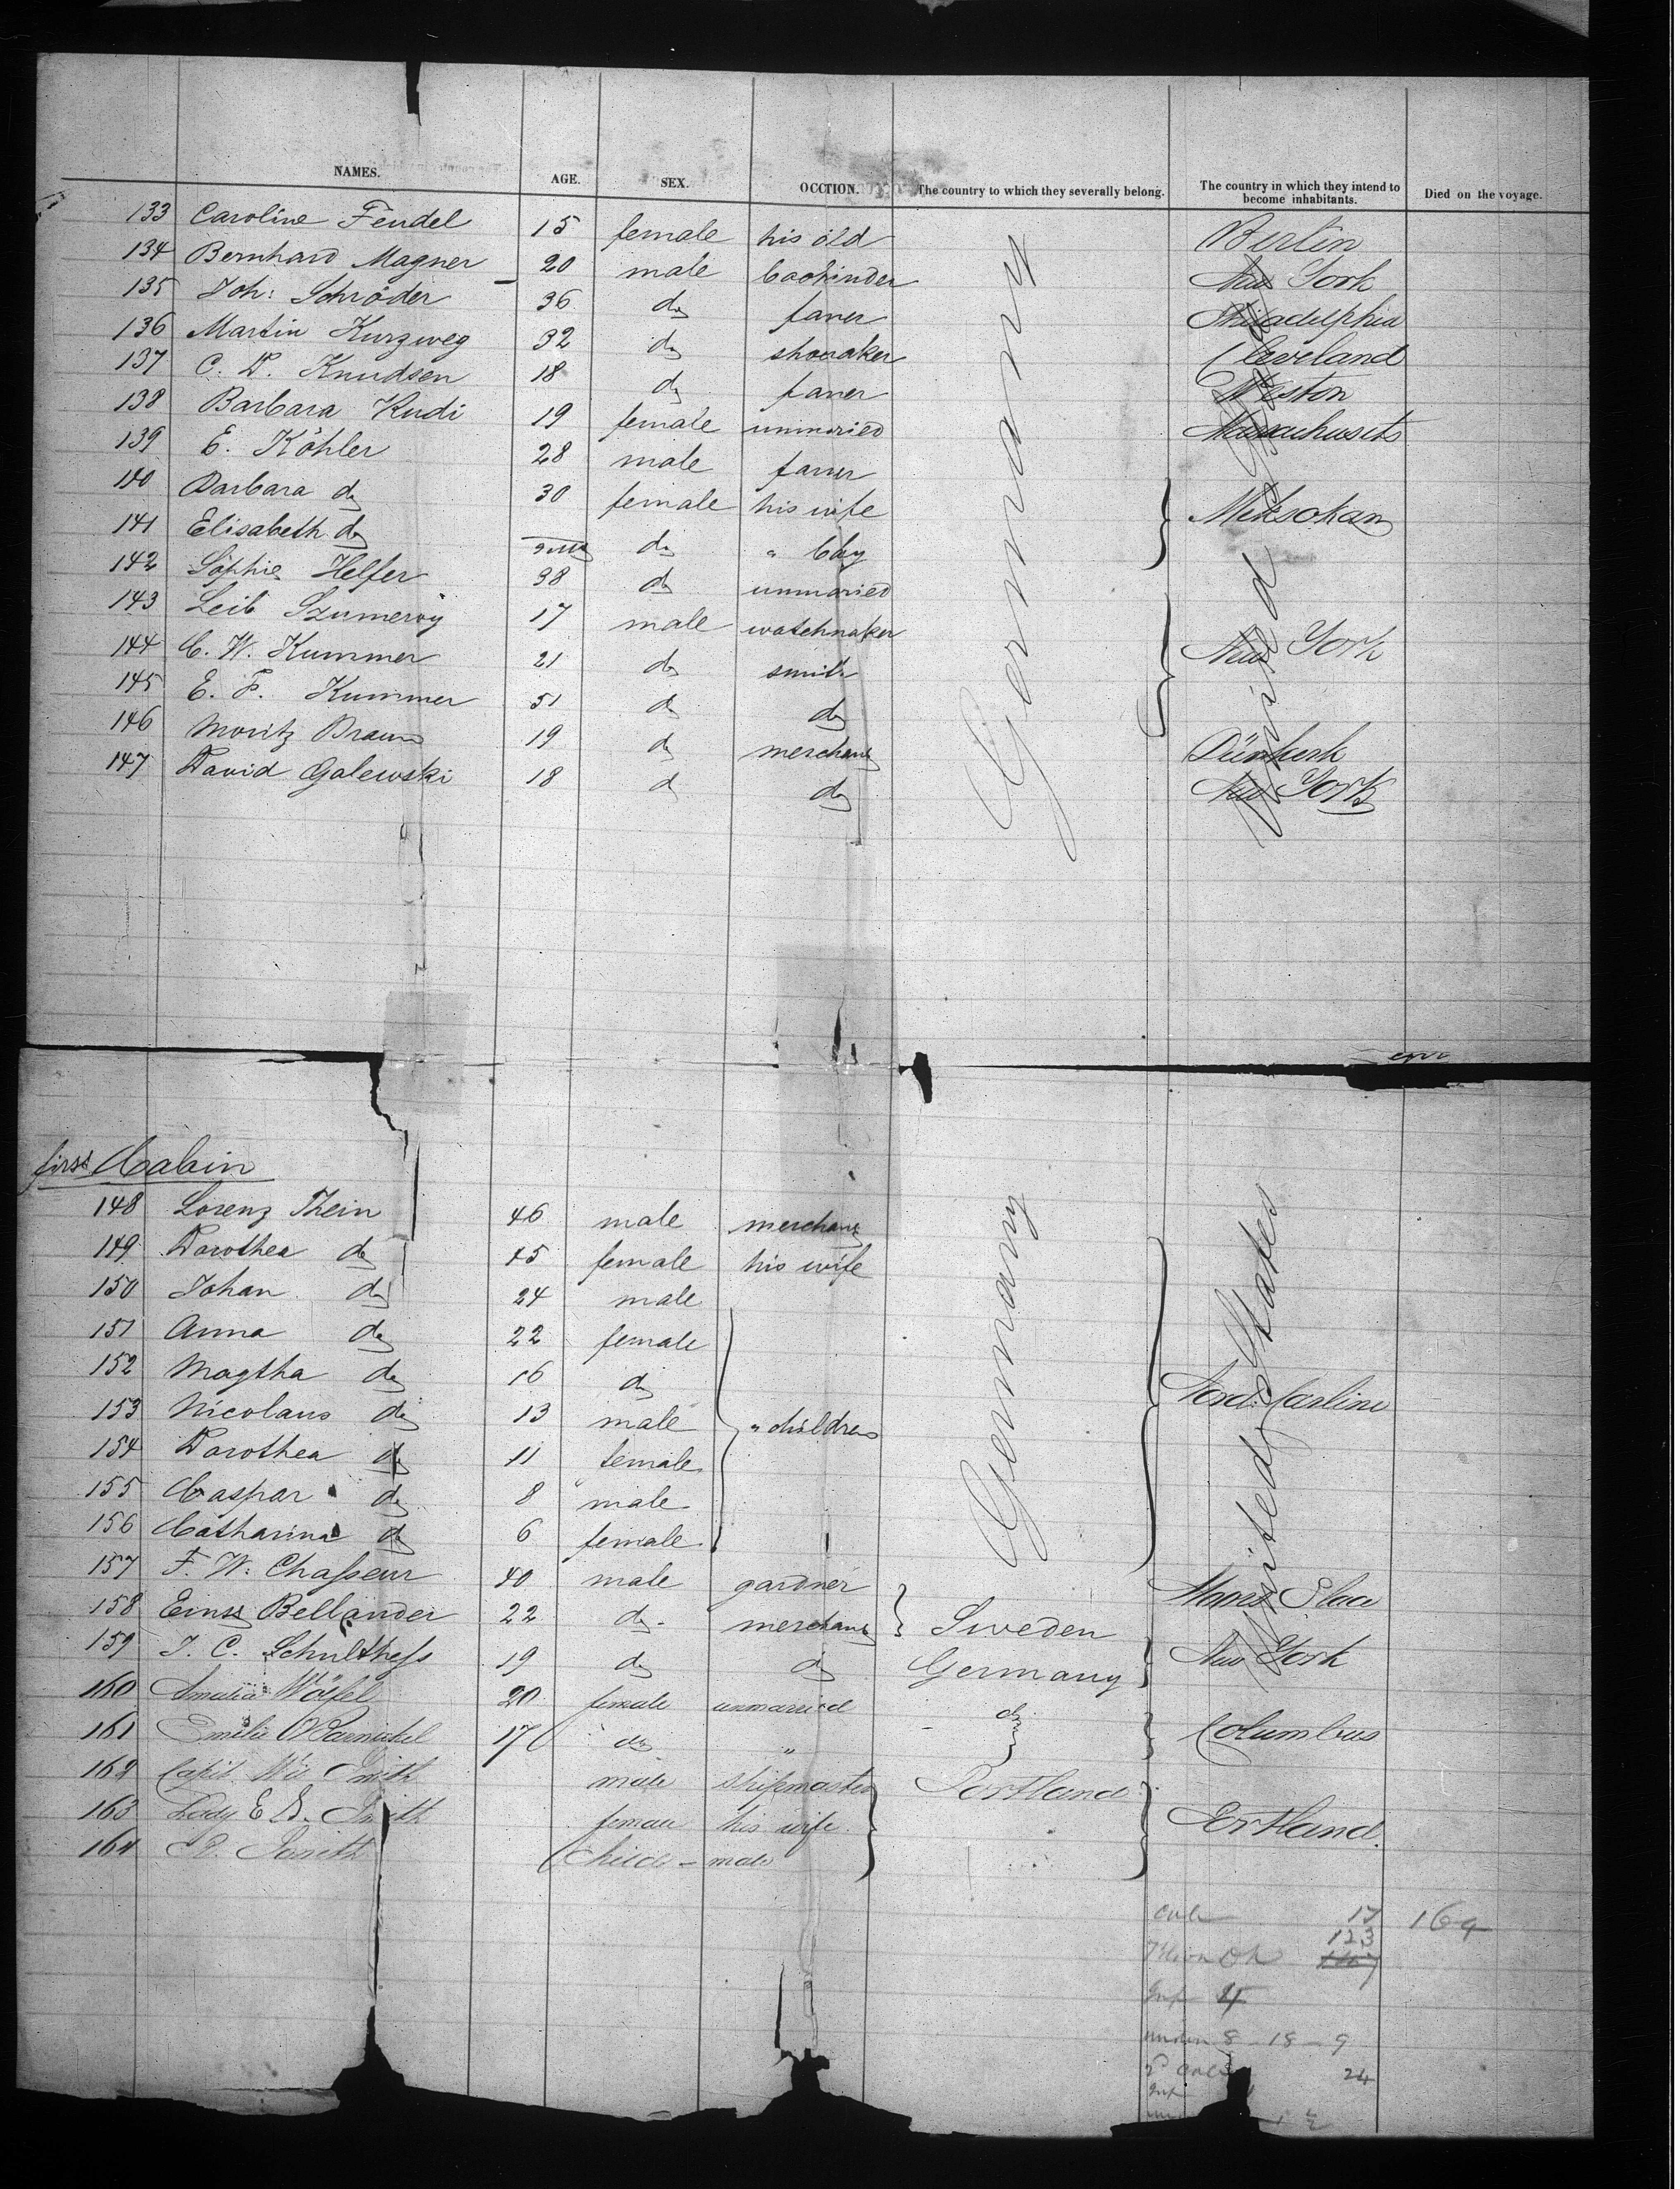 NAMES. AGE. SEX. OCCTION. The country to which they severally belong. The country in which they intend to become inhabitants. Died on the voyage.
133 Caroline Feudel 15 female his old Berlin
134 Bernhard Magner 20 male bookinder New York
135 Joh: Schröder 36 do farer Philadelphia
136 Martin Kurzweg 32 do shoeaker Cleveland
137 C. D. Knudsen 18 do farer Weston
138 Barbara Rudi 19 female unmaried Massachusets
139 E. Köhler 28 male farer
140 Barbara do 30 female his wife
141 Elisabeth do do " bby
142 Sophie Helfer 38 do unmaried
143 Leib 17 male watchmaker
144 C. W. Kummer 21 do smith New York
145 E. F. Kummer 51 do do
146 Moritz Braun 19 do merchant Dünkerk
147 David Galewski 18 do do New York
Germany
United States
first Cabin
148 Lorenz Thein 46 male merchant
149 Dorothea do 45 female his wife
150 Johan do 24 male
151 Anna do 22 female
152 Magtha do 16 do
153 Nicolaus do 13 male " children Nord: Carline
154 Dorothea do 11 female
155 Caspar do 8 male
156 Catharina do 6 female
157 F. W. Chasseur 40 male gardner
158 Ernst Bellander 22 do merchant Sweden
159 J. C. Schulthess 19 do do Germany New York
160 Amalia Wölfel 20 female unmarried do
161 Emilie 17 do " Columbus
162 Capit Wm Smith male shipmaster Portland
163 Lady E B. Smith female his wife Portland.
164 Smith Child - male
Germany
United States
17 164
123
147
4
under 8 - 18 - 9
24